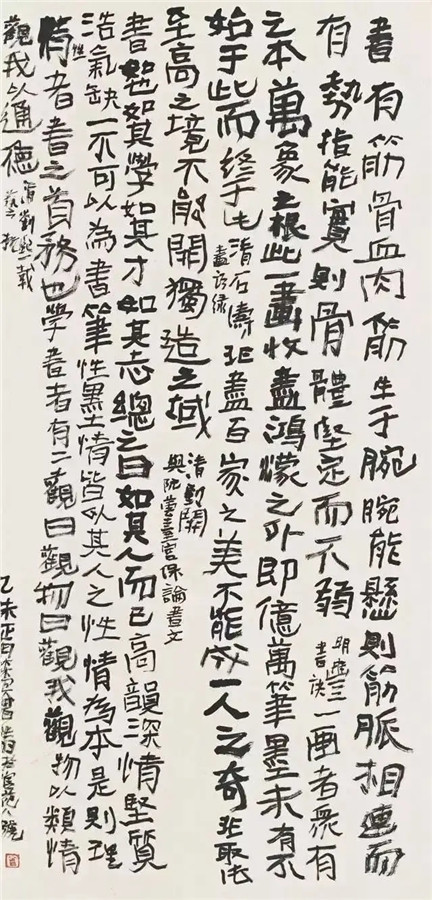 書有筋骨血肉筋生于腕腕能懸則筋脈相連而
有勢指能實則骨體堅定而不弱
書訣
一画者衆有
之本萬象之根此一畫收盡鴻濛之外即億萬筆墨未有不
始于此而終于此
清石濤
畫語錄
非盡百家之美不能成一人之奇非取法
至高之境不能開獨造之域
清劉開
與阮芸臺宮保論書文
書如也如其學如其才如其志總之曰如其人而已高韻深情堅質
浩氣缺一不可以為書筆性墨情皆以其人之性情為本是則理
性情者書之首務也學書者有二觀曰觀物曰觀我觀物以類情
觀我以通德
清劉熙載
藝概
乙未正月